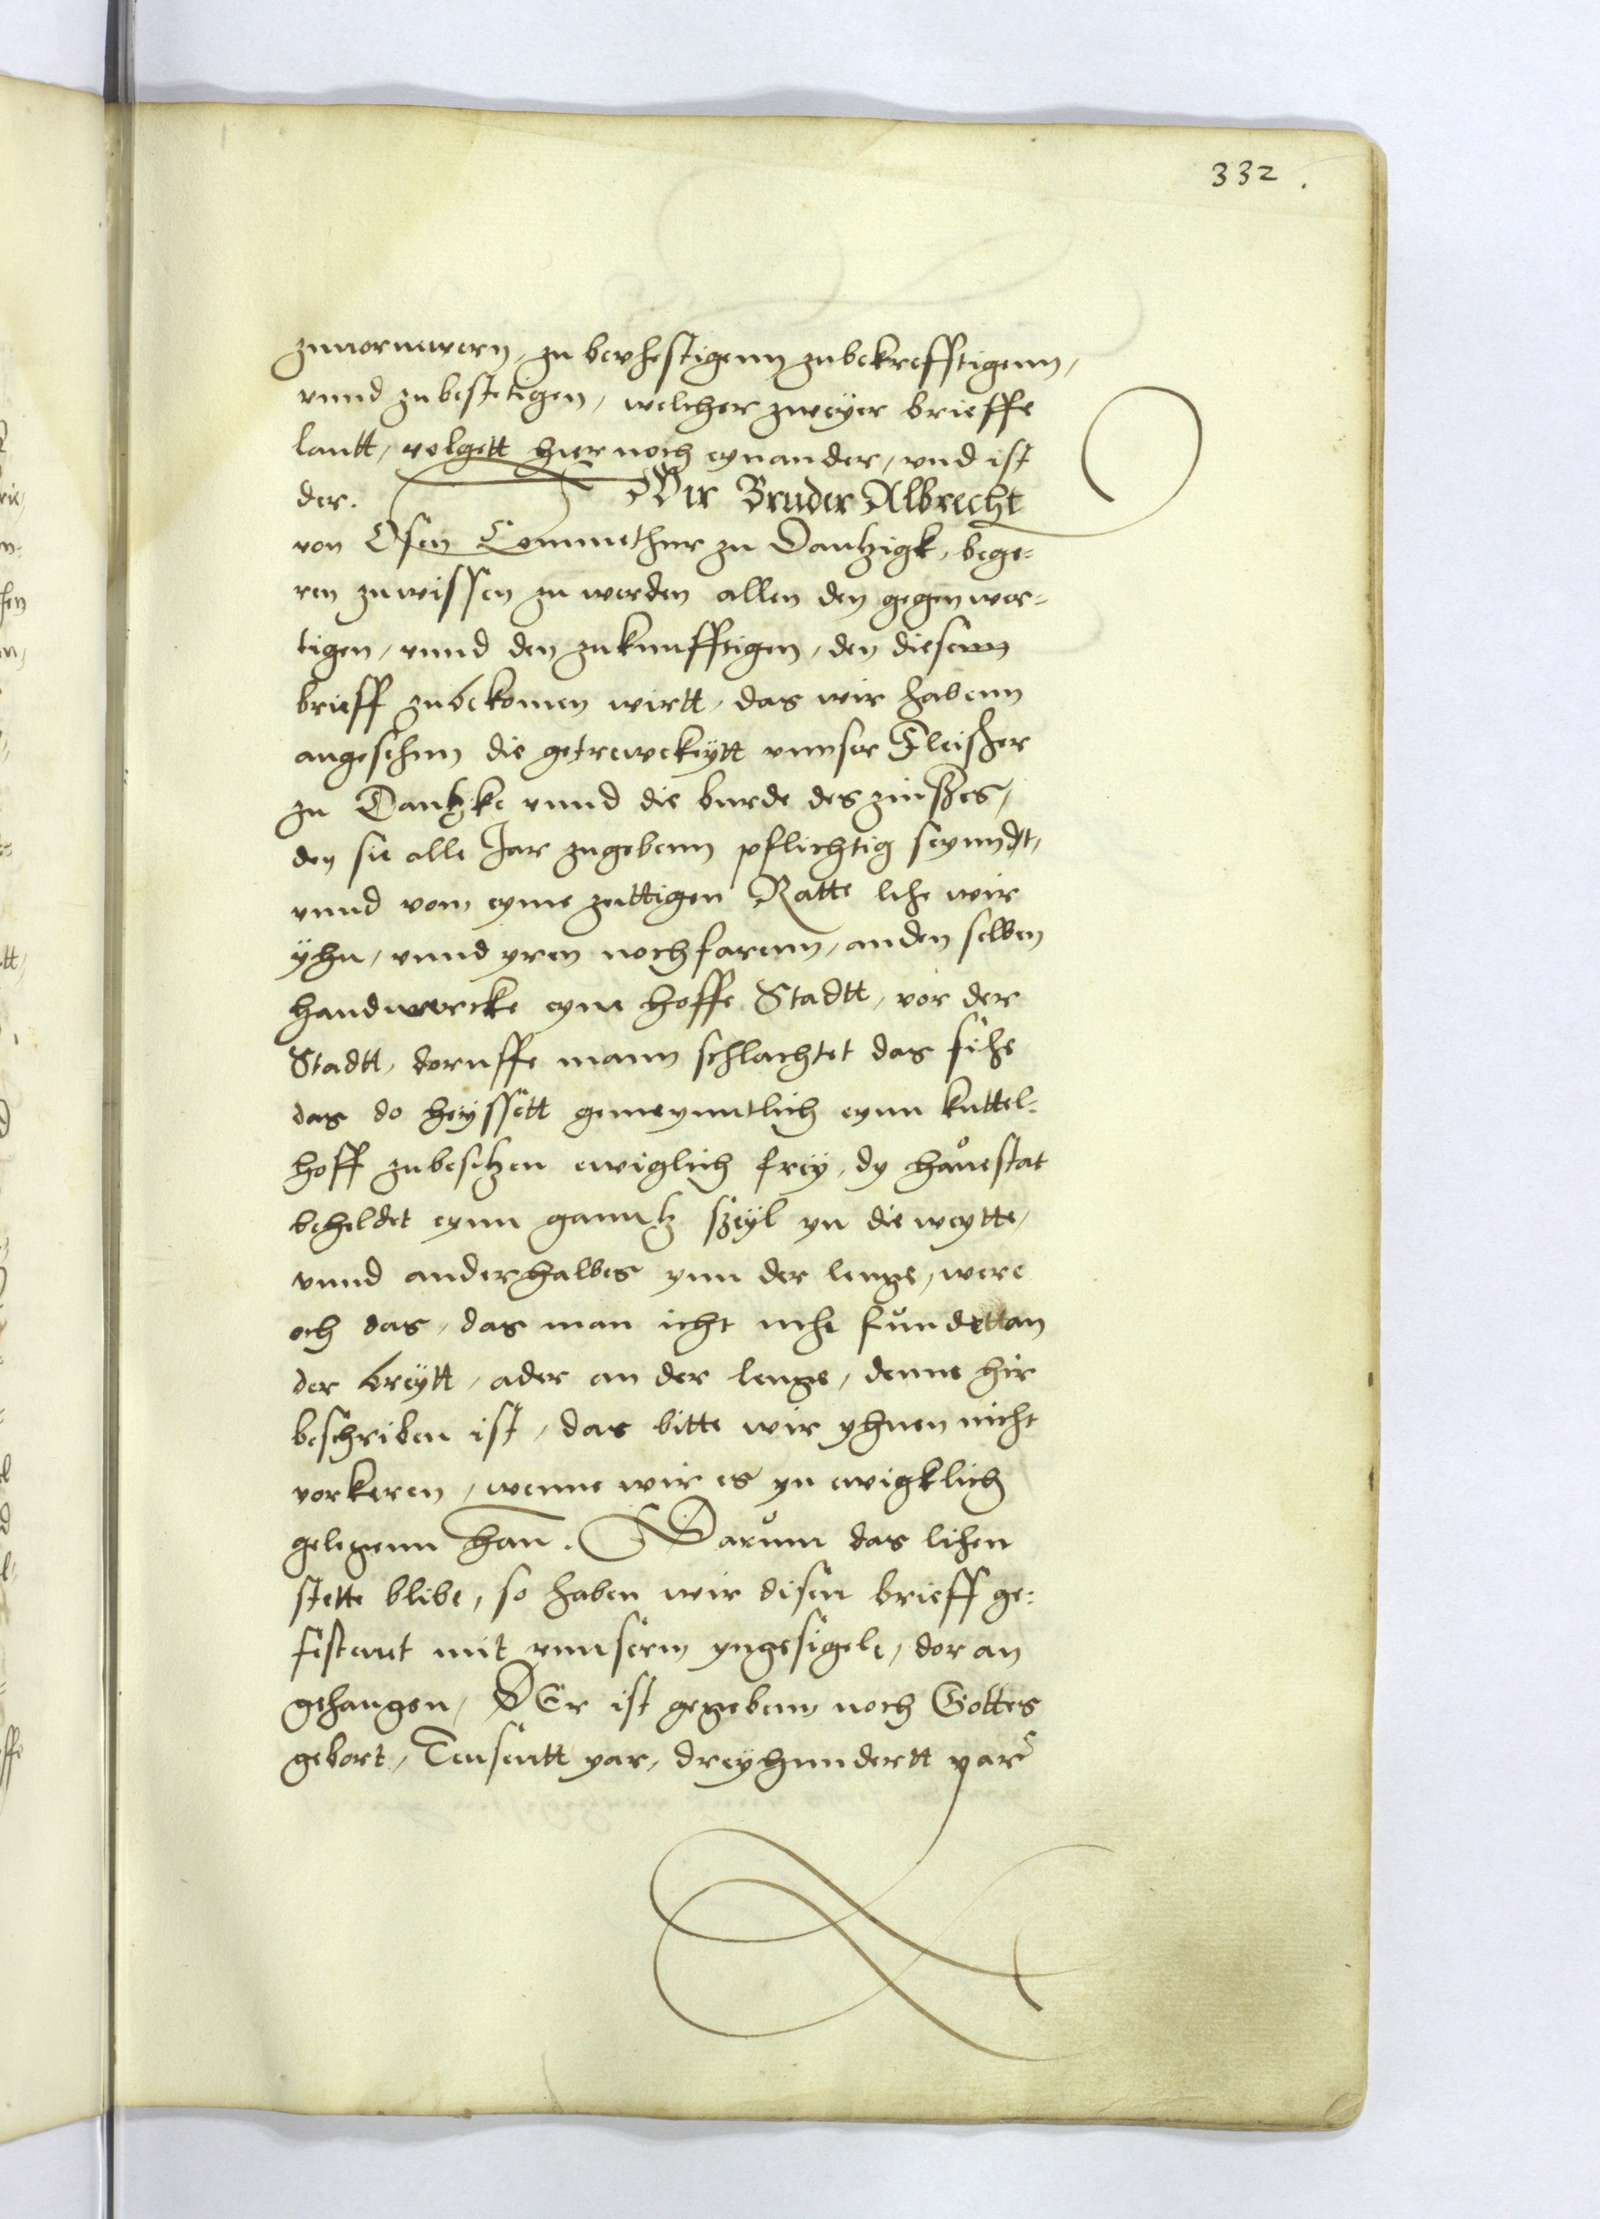 332.
zuuornewern, zu beuhestigenn zubekrefftigenn,
vnnd zubestetigen, welcher zweyer brieffe
lautt, volgett hier noch eynander, vnd ist
der. Wir Bruder Albrecht
von Osen Commethur zu Dantzigk, bege-
ren zuwissen zu werden allen den gegenwer-
tigen, vnnd den zukunfftigen, den diesenn
brieff zubekomen wirtt, das wir habenn
angesehnn die getrewekeytt vnnser Fleischer
zu Dantzke vnnd die burde des zinsches,
den sie alle Jar zugebenn pflichtig seynndt,
vnnd vom eyme zuttigen Ratte lihe wir
yhn, vnnd yren nochfarenn, an den selben
handwercke eyne hoffe Stadtt, vor der
Stadtt, doruffe mann schlachtet das fihe
das do heyssett gemeynntlich eynn kuttel-
hoff zubesitzen ewiglich frey, dy houestat
beheldet eynn ganntz szeyl yn die weytte,
vnnd anderhalbes ynn der lenge, were
och das, das man icht mehe fundett an
der breytt, ader an der lenge, denne hir
beschriben ist, das bitte wir yhnen nicht
vorkeren, wenne wir es yn ewigklich
gelegenn han. Darum das lihen
stette blibe, so haben wir disen brieff ge-
festenet mit vnnserm yngesigele, dor an
gehangen, DEr ist gegebenn noch Gottes
gebort, Tensentt yar, dreyhundertt yar